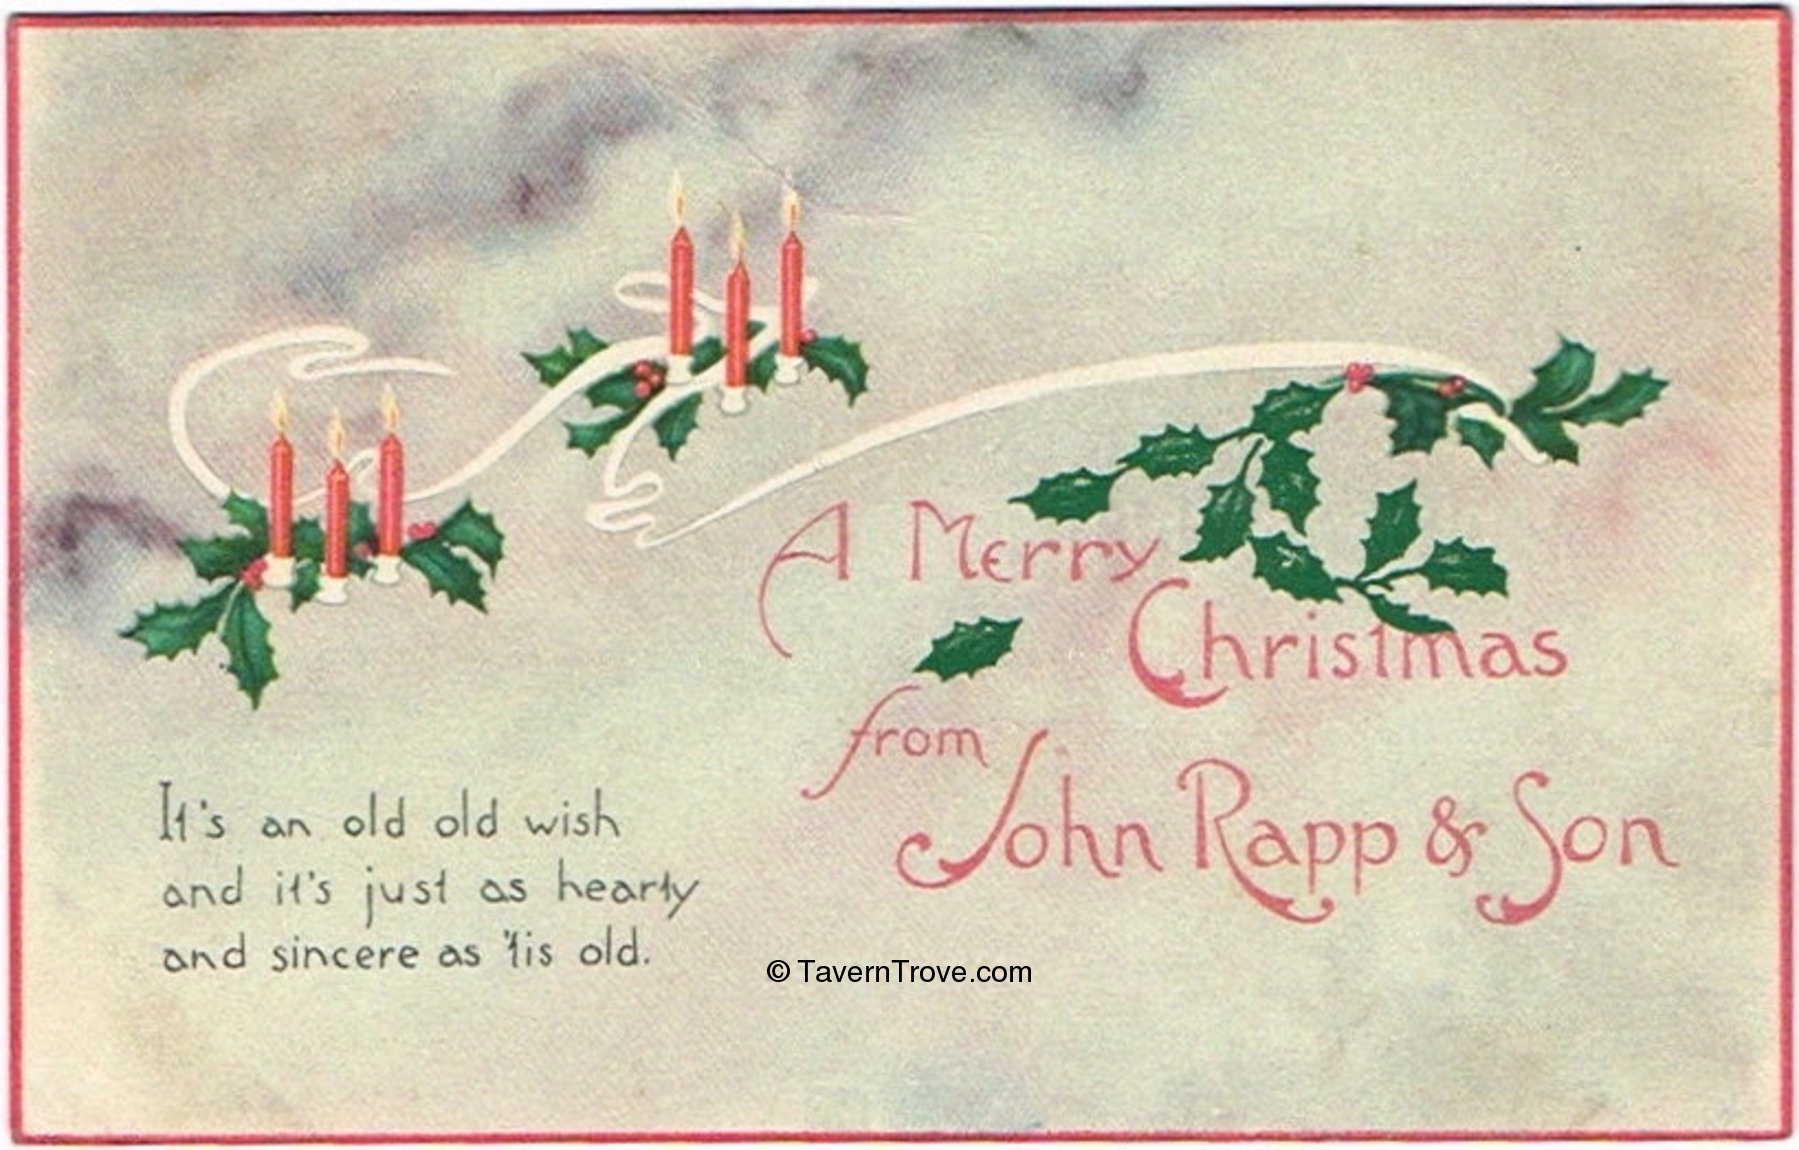 A Merry
Christmas
from
John Rapp & Son
It's an old old wish
and it's just as hearty
and sincere as 'tis old.
© TavernTrove.com